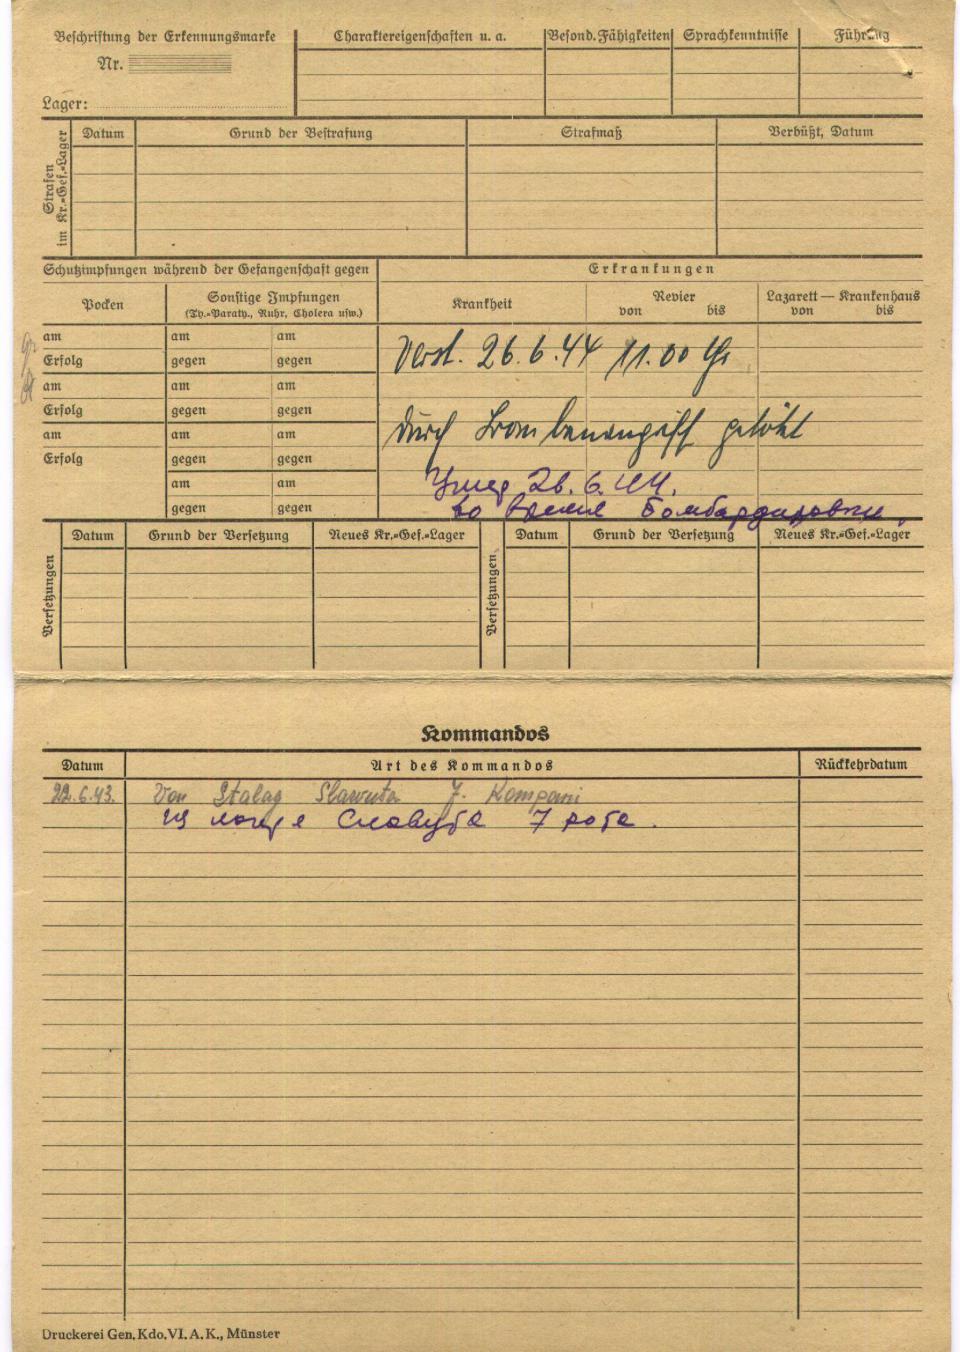 Beschriftung der Erkennungsmarke
Charaktereigenschaften u. a.
Besond. Fähigkeiten
Sprachkenntnisse
Führung
Nr.
Lager:
Strafen im Kr.=Gef.=Lager
Datum
Grund der Bestrafung
Strafmaß
Verbüßt, Datum
Schutzimpfungen während der Gefangenschaft gegen
Erkrankungen
Pocken
Sonstige Impfungen
(Ty.=Paraty., Ruhr, Cholera usw.)
Krankheit
Revier
von bis
Lazarett — Krankenhaus
von bis
am am am
Erfolg gegen gegen
am am am
Erfolg gegen gegen
am am am
Erfolg gegen gegen
am am
gegen gegen
Verst. 26.6.44 11.00
durch Bombenangriff getötet
Умер 26.6.44.
во время бомбардировки.
Versetzungen
Datum
Grund der Versetzung
Neues Kr.=Gef.=Lager
Versetzungen
Datum
Grund der Versetzung
Neues Kr.=Gef.=Lager
Kommandos
Datum
Art des Kommandos
Rückkehrdatum
22.6.43. Von Stalag Slawuta 7. Kompani
из лагеря Славута 7 рота.
Druckerei Gen. Kdo. VI. A. K., Münster